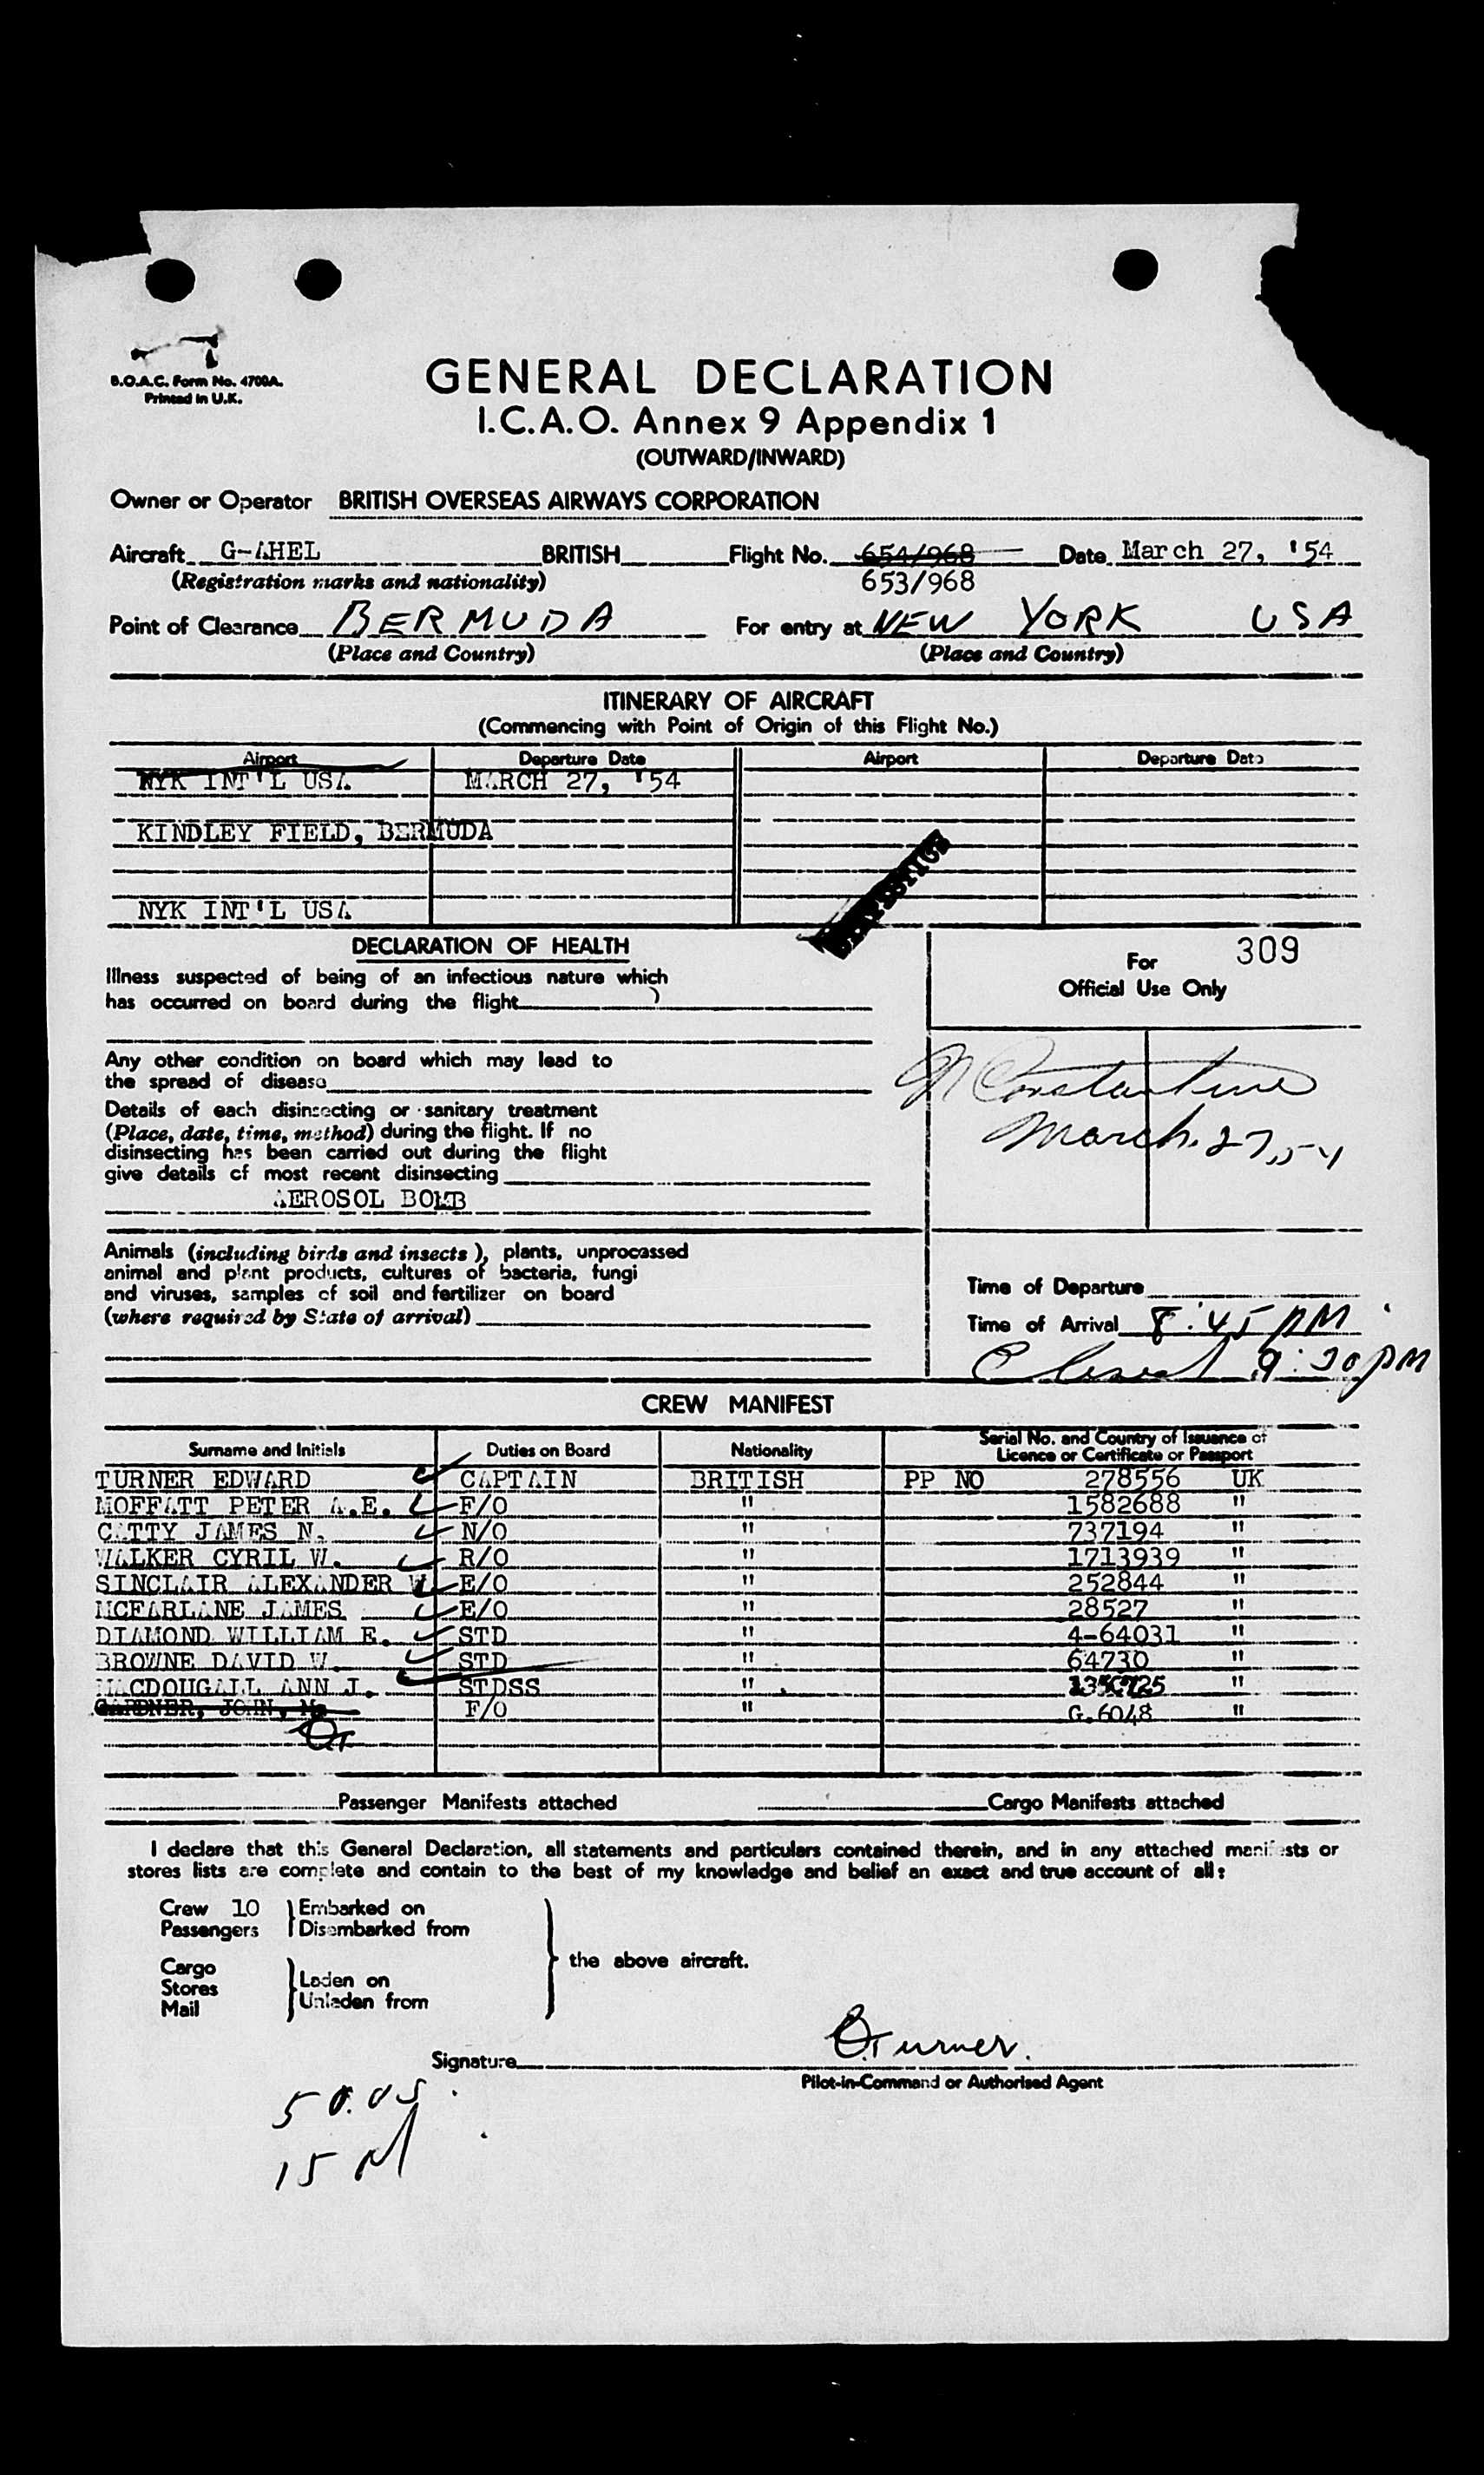 B.O.A.C. Form No. 4700A.
Printed in U.K.
GENERAL DECLARATION
I.C.A.O. Annex 9 Appendix 1
(OUTWARD/INWARD)
Owner or Operator BRITISH OVERSEAS AIRWAYS CORPORATION
Aircraft G-AHEL BRITISH Flight No. 654/968 Date March 27, '54
(Registration marks and nationality) 653/968
Point of Clearance BERMUDA For entry at NEW YORK USA
(Place and Country) (Place and Country)
ITINERARY OF AIRCRAFT
(Commencing with Point of Origin of this Flight No.)
Airport Departure Date Airport Departure Date
NYK INT'L USA MARCH 27, '54
KINDLEY FIELD, BERMUDA
NYK INT'L USA
DECLARATION OF HEALTH
Illness suspected of being of an infectious nature which
has occurred on board during the flight
For 309
Official Use Only
Any other condition on board which may lead to
the spread of disease
Details of each disinsecting or sanitary treatment
(Place, date, time, method) during the flight. If no
disinsecting has been carried out during the flight
give details of most recent disinsecting
AEROSOL BOMB
M Constantine
March 27, 54
Animals (including birds and insects), plants, unprocessed
animal and plant products, cultures of bacteria, fungi
and viruses, samples of soil and fertilizer on board
(where required by State of arrival)
Time of Departure
Time of Arrival 8:45 PM
Closed 9:20 PM
CREW MANIFEST
Surname and Initials Duties on Board Nationality Serial No. and Country of Issuance of Licence or Certificate or Passport
TURNER EDWARD CAPTAIN BRITISH PP NO 278556 UK
MOFFATT PETER A.E. F/O " 1582688 "
CATTY JAMES N. N/O " 737194 "
WALKER CYRIL W. R/O " 1713939 "
SINCLAIR ALEXANDER W E/O " 252844 "
MCFARLANE JAMES E/O " 28527 "
DIAMOND WILLIAM E. STD " 4-64031 "
BROWNE DAVID W. STD " 64730 "
MACDOUGALL ANN J. STDSS " "
GARDNER, JOHN, F/O " G.6048 "
Passenger Manifests attached Cargo Manifests attached
I declare that this General Declaration, all statements and particulars contained therein, and in any attached manifests or
stores lists are complete and contain to the best of my knowledge and belief an exact and true account of all:
Crew 10 Embarked on
Passengers Disembarked from
the above aircraft.
Cargo
Stores Laden on
Mail Unladen from
Signature ETurner.
Pilot-in-Command or Authorised Agent